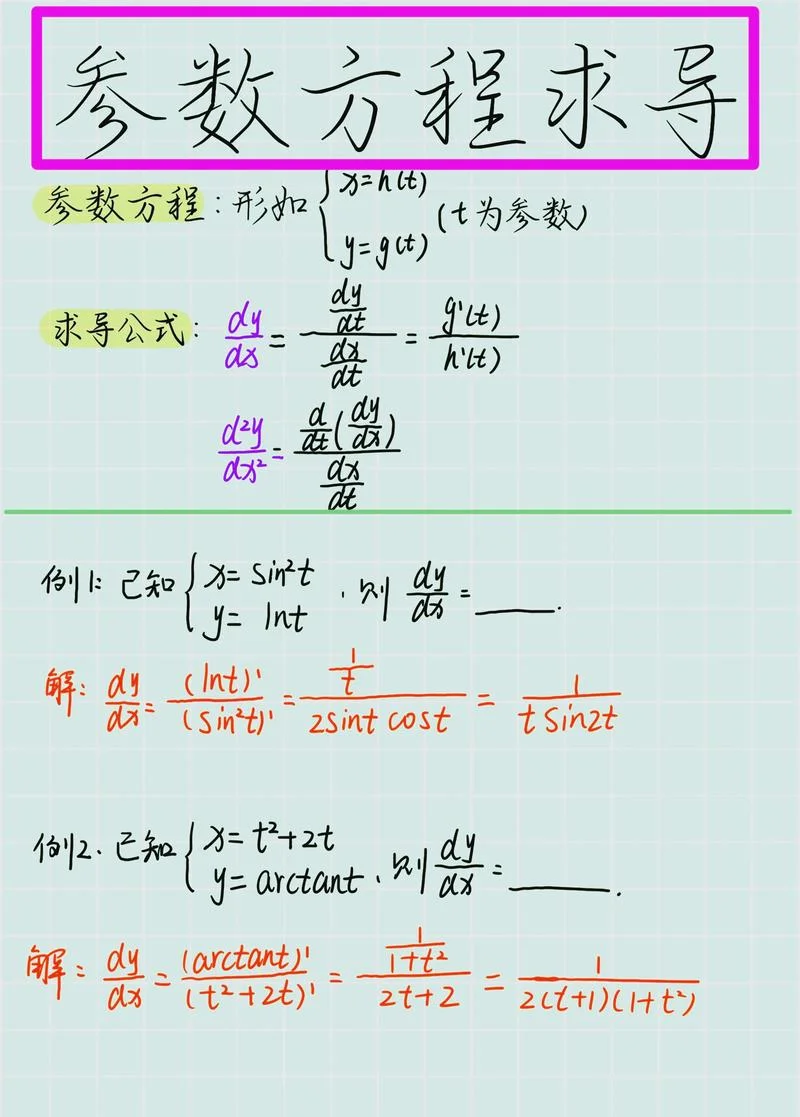 参数方程求导
参数方程：形如 { x=h(t)
y=g(t) (t为参数)
求导公式： dy/dx = (dy/dt)/(dx/dt) = g'(t)/h'(t)
d²y/dx² = (d/dt(dy/dx))/(dx/dt)
例1：已知 { x= sin²t
y= lnt ，则 dy/dx = ____.
解： dy/dx = (lnt)'/(sin²t)' = (1/t)/(2sint cost) = 1/(t sin2t)
例2、已知 { x= t²+2t
y= arctant ，则 dy/dx = ____.
解： dy/dx = (arctant)'/(t²+2t)' = (1/(1+t²))/(2t+2) = 1/(2(t+1)(1+t²))